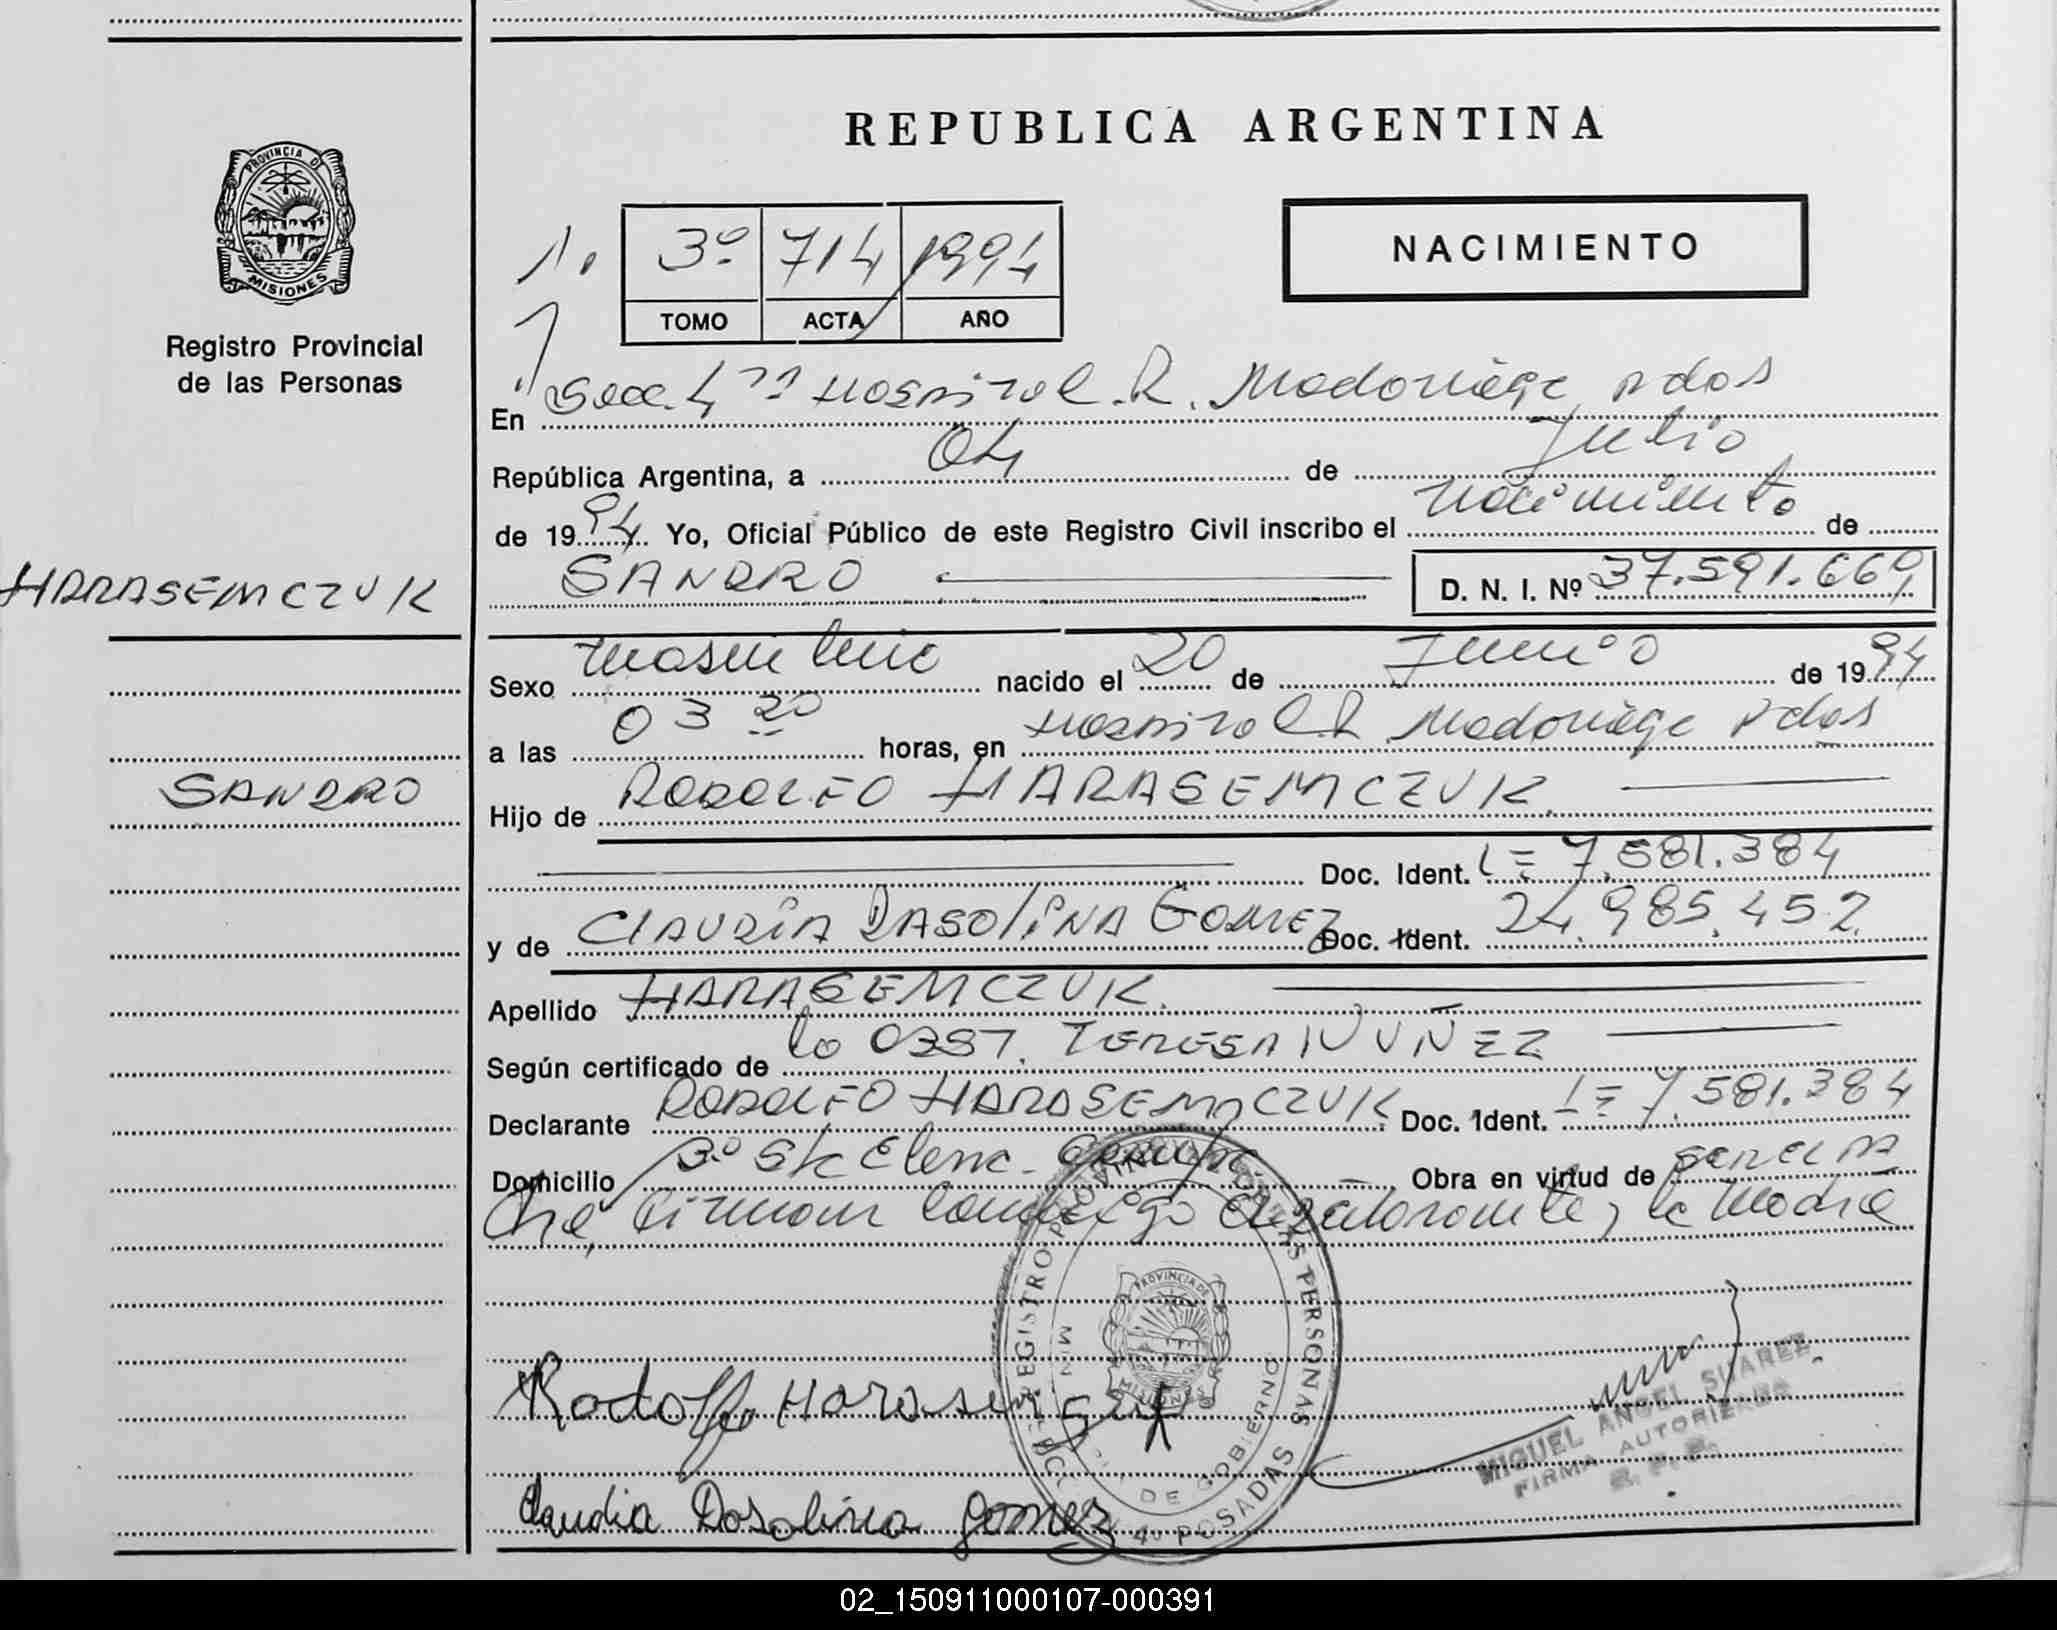 REPUBLICA ARGENTINA
PROVINCIA DE
MISIONES
Registro Provincial
de las Personas
3º 714 1994
TOMO ACTA AÑO
NACIMIENTO
En Secc. 4ta Hospital R. Madariaga Pdas
República Argentina, a 04 de Julio
de 1994 Yo, Oficial Público de este Registro Civil inscribo el nacimiento de
HARASEMCZUK
SANDRO D. N. I. Nº 37.591.669
Sexo masculino nacido el 20 de Junio de 1994
a las 03 20 horas, en Hospital R. Madariaga Pdas
SANDRO
Hijo de RODOLFO HARASEMCZUK
Doc. Ident. L= 7.581.384
y de CLAUDIA DASOLINA GOMEZ Doc. Ident. 24.985.452
Apellido HARASEMCZUK
Según certificado de la OBST. TERESA NUÑEZ
Declarante RODOLFO HARASEMCZUK Doc. Ident. L= 7.581.384
Domicilio Bº Sta Elena Obra en virtud de
firman conmigo el declarante y la Madre
REGISTRO PROVINCIAL DE LAS PERSONAS
PROVINCIA DE
MISIONES
DE GOBIERNO
4º POSADAS
Rodolfo Harasemczuk
MIGUEL ANGEL SUAREZ
FIRMA AUTORIZADA
Claudia Dosolina Gomez
02_150911000107-000391